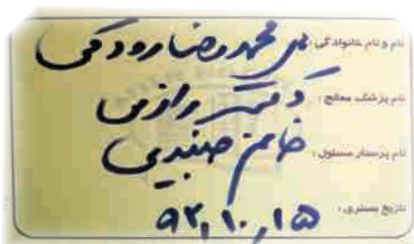 نام و نام خانوادگی: علی محمدرضا رودکی
نام پزشک معالج: دکتر رازی
نام پرستار مسئول: خانم صنبدی
تاریخ بستری: ۹۲,۱۰,۱۵